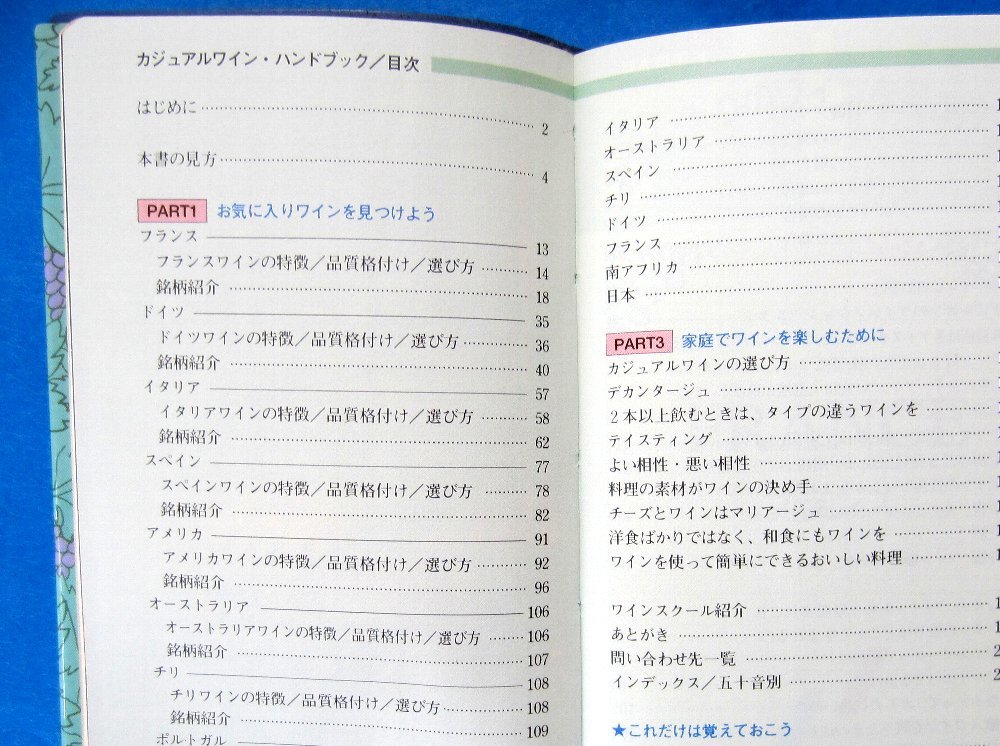 カジュアルワイン・ハンドブック／目次
はじめに 2
本書の見方 4
PART1 お気に入りワインを見つけよう
フランス 13
フランスワインの特徴／品質格付け／選び方 14
銘柄紹介 18
ドイツ 35
ドイツワインの特徴／品質格付け／選び方 36
銘柄紹介 40
イタリア 57
イタリアワインの特徴／品質格付け／選び方 58
銘柄紹介 62
スペイン 77
スペインワインの特徴／品質格付け／選び方 78
銘柄紹介 82
アメリカ 91
アメリカワインの特徴／品質格付け／選び方 92
銘柄紹介 96
オーストラリア 106
オーストラリアワインの特徴／品質格付け／選び方 106
銘柄紹介 107
チリ 108
チリワインの特徴／品質格付け／選び方 108
銘柄紹介 109
ポルトガル
イタリア 1
オーストラリア 1
スペイン 1
チリ 1
ドイツ 1
フランス 1
南アフリカ 1
日本 1
PART3 家庭でワインを楽しむために
カジュアルワインの選び方 1
デカンタージュ 1
2本以上飲むときは、タイプの違うワインを 1
テイスティング 1
よい相性・悪い相性 1
料理の素材がワインの決め手 1
チーズとワインはマリアージュ 1
洋食ばかりではなく、和食にもワインを 1
ワインを使って簡単にできるおいしい料理 1
ワインスクール紹介 1
あとがき 1
問い合わせ先一覧 2
インデックス／五十音別 2
★これだけは覚えておこう